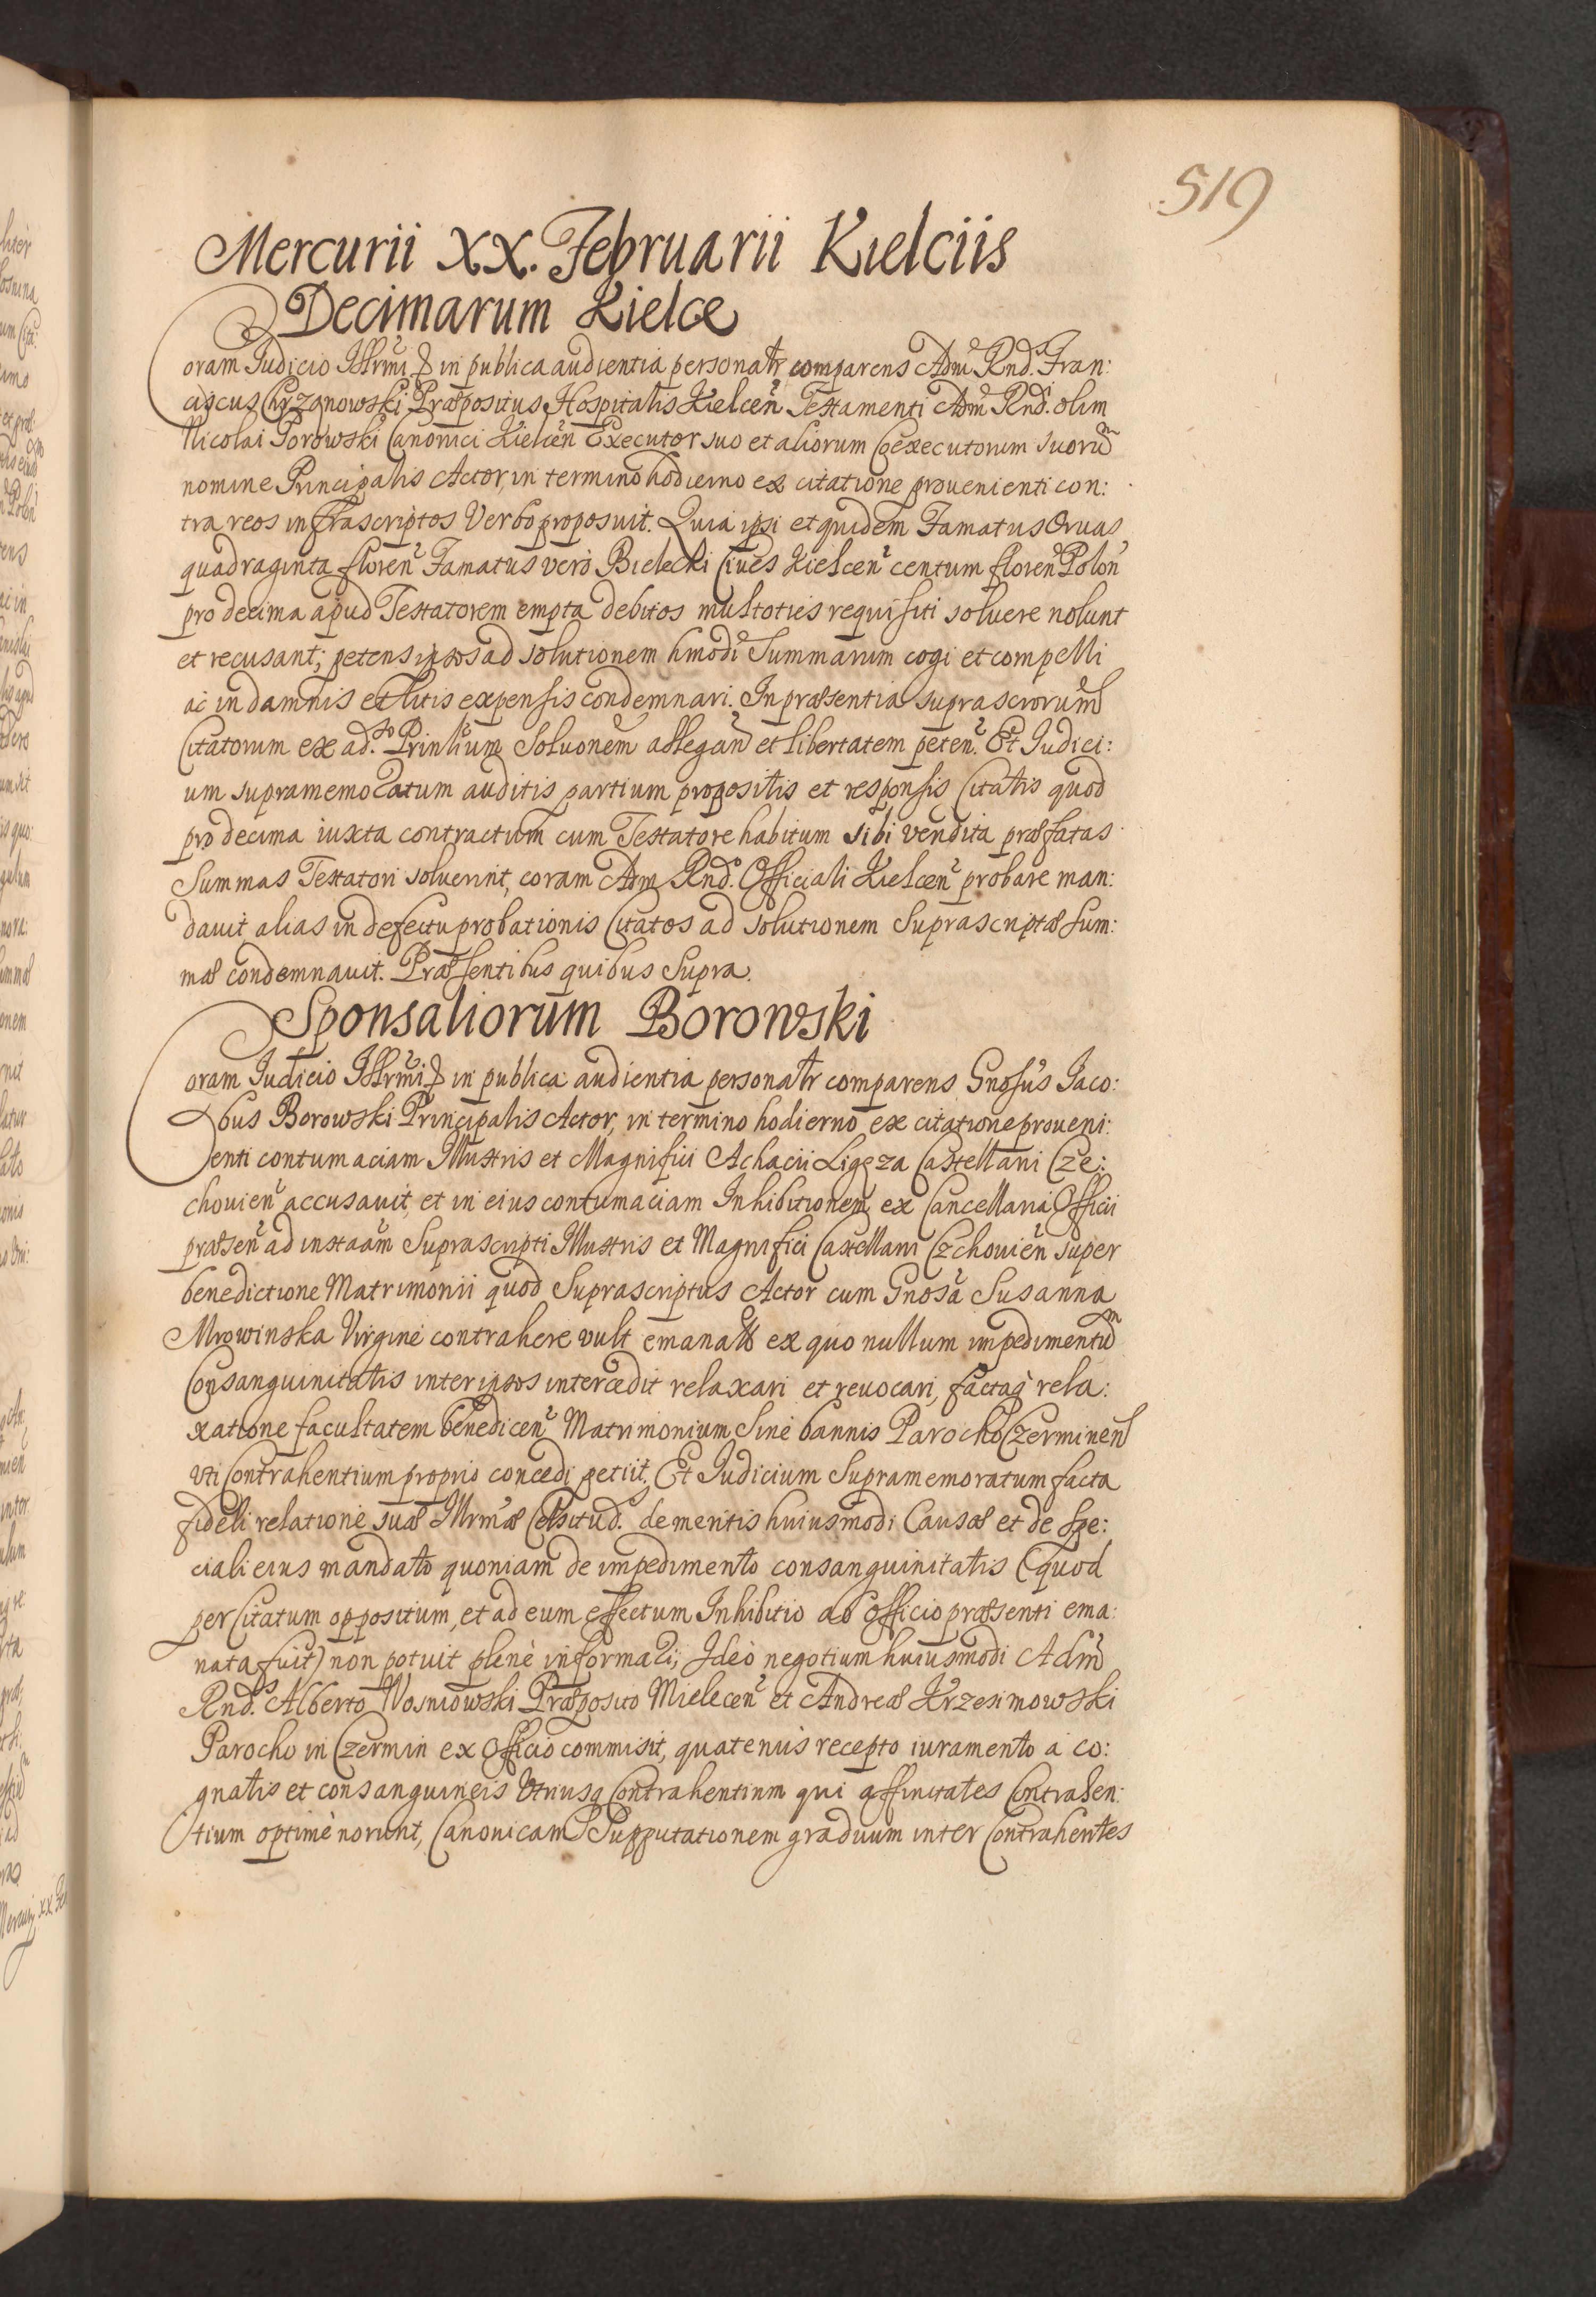 519
Mercurii XX. Februarii Kielciis
Decimarum Kielce
Coram Judicio Illrmi in publica audientia personatr comparens Adm Rnd. Fran:
ciscus Chrzanowski Præpositus Hospitalis Kielcen Testamenti Adm Rndi. olim
Nicolai Porowski Canonici Kielcen Executor suo et aliorum Coexecutorum suorum
nomine Principalis Actor, in termino hodierno ex citatione provenienti con:
tra reos infrascriptos Verbo proposuit. Quia ipsi et quidem Famatus
quadraginta floren Famatus verò Bielecki Ciues Kielcen centum floren Polon
pro decima apud Testatorem empta debitos multoties requisiti soluere nolunt
et recusant; petens ipsos ad solutionem hmodi Summarum cogi et compelli
ac in damnis et litis expensis condemnari. In præsentia suprascrorum
Citatorum ex ad. Prinlium Soluonem allegan et libertatem peten. Et Judici:
um supramemoratum auditis partium propositis et responsis Citatis quod
pro decima iuxta contractum cum Testatore habitum sibi vendita præfatas
Summas Testatori soluerint, coram Adm Rndo. Officiali Kielcen probare man:
dauit alias in defectu probationis Citatos ad solutionem Suprascriptæ sum:
mæ condemnauit. Præsentibus quibus Supra.
Sponsaliorum Borowski
Coram Judicio Illrmi in publica audientia personatr comparens Gnosus Jaco:
bus Borowski Principalis Actor, in termino hodierno ex citatione proueni:
enti contumaciam Illustris et Magnifici Achacii Ligęza Castellani Cze:
chouien accusauit, et in eius contumaciam Inhibitionem ex Cancellaria Officii
præsen ad instaam Suprascripti Illustris et Magnifici Castellani Czchouien super
benedictione Matrimonii quod Suprascriptus Actor cum Gnosa Susanna
Mrowinska Virgine contrahere vult emanatb ex quo nullum impedimentum
Consanguinitatis inter ipsos intercedit relaxari et reuocari, factaq rela:
xatione facultatem benedicen Matrimonium Sine bannis Parocho Czerminen
vti Contrahentium proprio concedi petiit. Et Judicium Supramemoratum facta
fideli relatione suæ Illrmæ Celsitud. de meritis huiusmodi Causæ et de spe:
ciali eius mandato quoniam de impedimento consanguinitatis (quod
per Citatum oppositum, et ad eum effectum Inhibitio ab officio præsenti ema:
nata fuit) non potuit plenè informari; Ideò negotium huiusmodi Adm
Rnd. Alberto Wosniowski Præposito Mielecen et Andreæ Krzesimowski
Parocho in Czermin ex Officio commisit, quatenùs recepto iuramento à co:
gnatis et consanguineis Vtriusq Contrahentium qui affinitates Contrahen:
tium optimè norunt, Canonicam Supputationem graduum inter Contrahentes